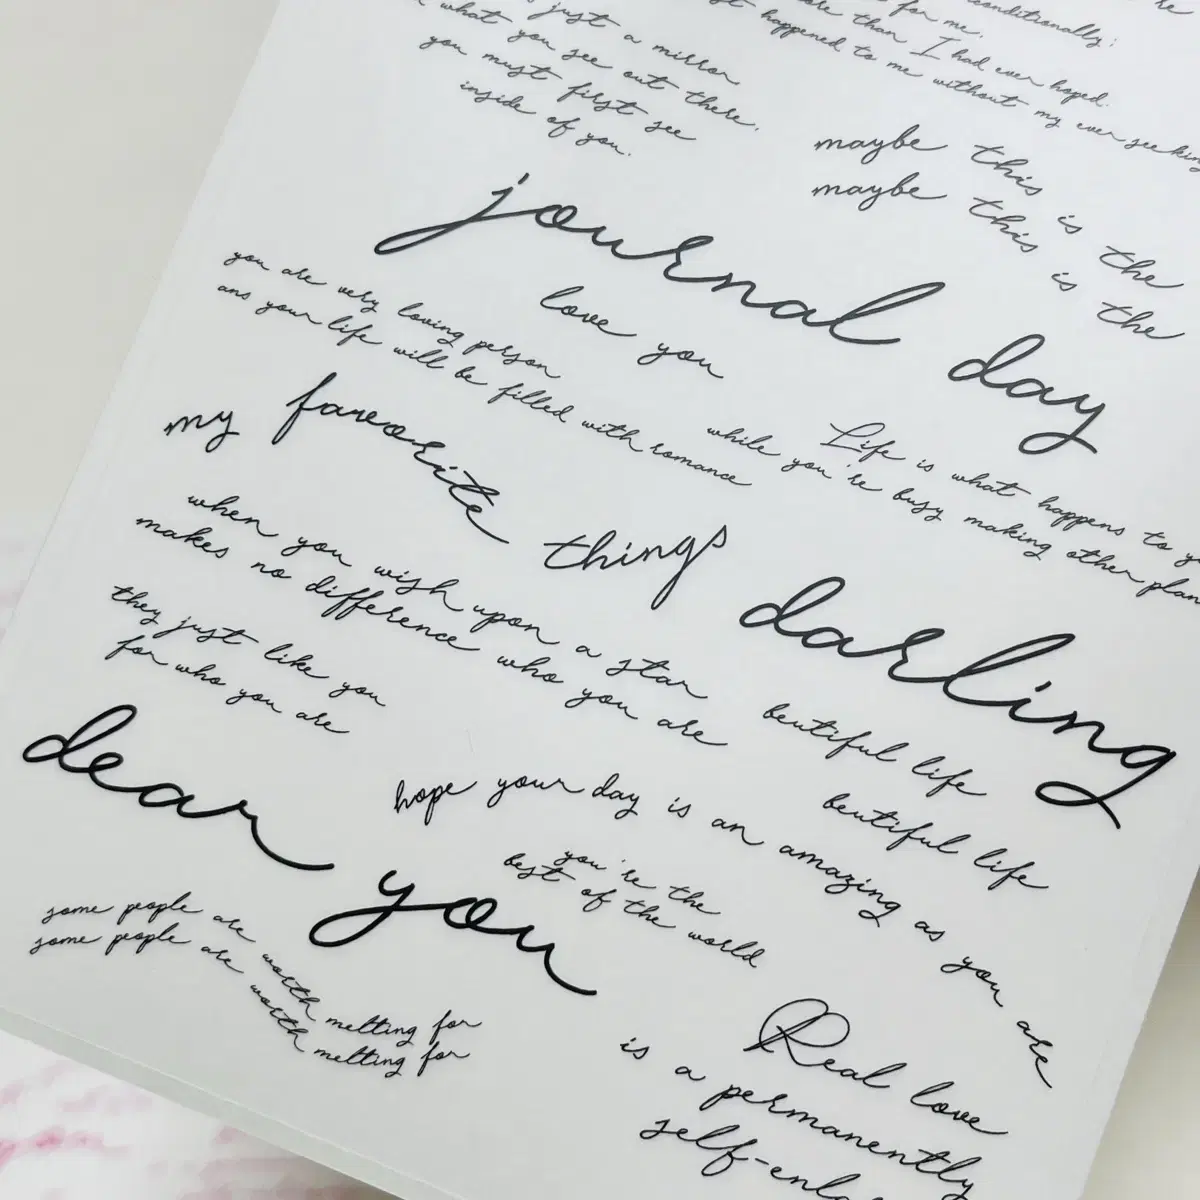 just a mirror
what you see out there,
you must first see
inside of you.
conditionally;
for me.
than I had ever hoped.
happened to me without my ever seeking
maybe this is the
maybe this is the
journal day
love you
you are very loving person
ans your life will be filled with romance
Life is what happens to
while you're busy making other plan
my favorite things
darling
when you wish upon a star
makes no difference who you are
they just like you
for who you are
beutiful life
beutiful life
dear you
hope your day is an amazing as you are
you're the
best of the world
some people are worth melting for
some people are worth melting for
Real love
is a permanently
self-enla